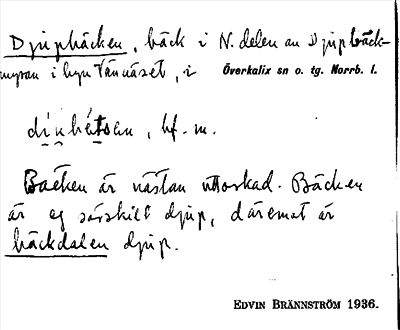 Djupbäcken, bäck i N. delen av Djupbäck-
myran i byn Vännäset, i Överkalix sn o. tg. Norrb. l.
bf. m.
Bäcken är nästan uttorkad. Bäcken
är ej särskilt djup, däremot är
bäckdalen djup.
EDVIN BRÄNNSTRÖM 1936.